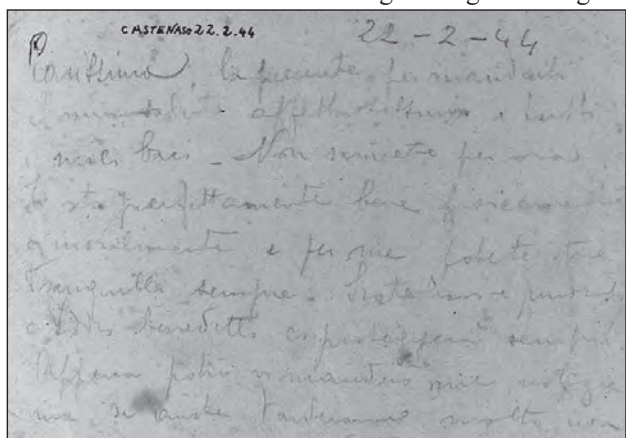 CASTENASO 22.2.44
22-2-44
Carissima, la presente per mandarti
affettuosissimi e tanti
miei baci - Non scrivete per ora
Io sto perfettamente bene fisicamente
e moralmente e per me potete stare
tranquilla sempre.
benedetto ci proteggerà sempre
Appena potrò vi manderò mie notizie
ma se anche tarderanno molto non